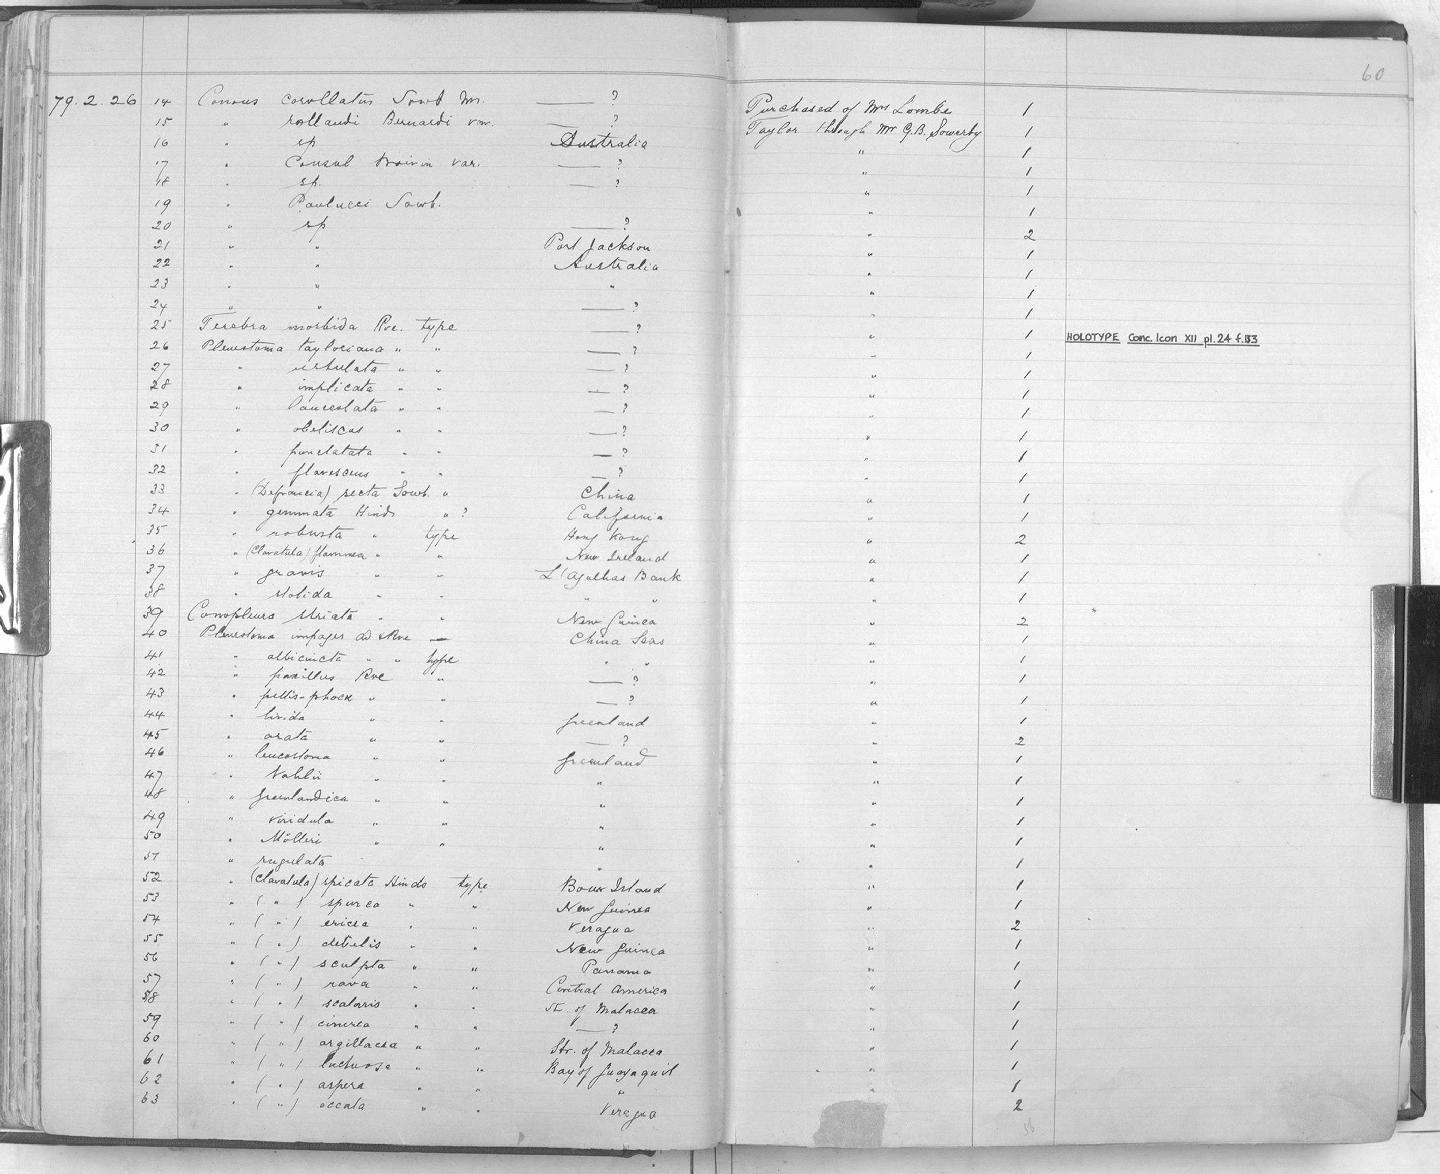 60
79.2.26 14 Conus corollatus Sowb ? Purchased of Mrs Lombe 1
15 " rollandi Bernardi var. ? Taylor through Mr G.B. Sowerby 1
16 " sp Australia " 1
17 " Consul var. ? " 1
18 " sp. ? " 1
19 " Paulucci Sowb. " 1
20 " sp ? " 2
21 " " Port Jackson " 1
22 " " Australia " 1
23 " " " " 1
24 " " ? " 1
25 Terebra morbida Rve. type ? " 1
26 Pleurotoma tayloriana " " ? " 1 HOLOTYPE Conc. Icon XII pl. 24 f.
27 " " " ? " 1
28 " implicata " " ? " 1
29 " " " ? " 1
30 " obeliscus " " ? " 1
31 " punctatata " " ? " 1
32 " flavescens " " ? " 1
33 " (Defrancia) recta Sowb. " China " 1
34 " gemmata Hinds " ? California " 1
35 " robusta type Hong Kong " 2
36 " (Clavatula) flammea " " New Ireland " 1
37 " gravis " " L'Agulhas Bank " 1
38 " stolida " " " " " 1
39 Conopleura striata " " New Guinea " 2
40 Pleurotoma China Seas " 1
41 " albicincta " " type " " " 1
42 " paxillus Rve " ? " 1
43 " pellis-phocæ " " ? " 1
44 " livida " " Greenland " 1
45 " " " ? " 2
46 " leucostoma " " Greenland " 1
47 " Vahlii " " " " 1
48 " grœnlandica " " " " 1
49 " viridula " " " " 1
50 " Mölleri " " " " 1
51 " rugulata " " 1
52 " (Clavatula) spicata Hinds type Bouw Island " 1
53 " ( " ) spurca " " New Guinea " 1
54 " ( " ) ericea " " Veragua " 2
55 " ( " ) debilis " " New Guinea " 1
56 " ( " ) sculpta " " Panama " 1
57 " ( " ) rava " " Central America " 1
58 " ( " ) scalaris " " St. of Malacca " 1
59 " ( " ) cinerea " " ? " 1
60 " ( " ) argillacea " " Str. of Malacca " 1
61 " ( " ) luctuosa " " Bay of Guayaquil " 1
62 " ( " ) aspera " " " 1
63 " ( " ) occata " " Veragua 2